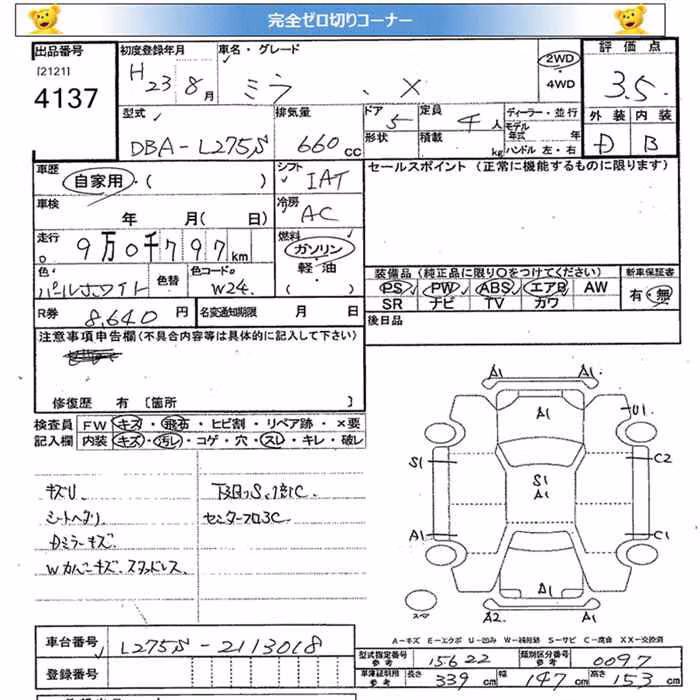 完全ゼロ切りコーナー
出品番号
[2121]
4137
初度登録年月
H23 8月
車名・グレード
ミラ X
2WD
4WD
評価点
3.5
外装 内装
D B
型式
DBA-L275S
排気量
660 cc
ドア 5
定員 4人
形状
積載 kg
ディーラー・並行
モデル年式 年
ハンドル 左・右
車歴
自家用・( )
シフト
IAT
セールスポイント (正常に機能するものに限ります)
車検
年 月( 日)
冷房
AC
走行
9万0千797km
燃料
ガソリン・軽油
( )
色
パールホワイト
色替
色コードNo.
W24
装備品 (純正品に限り○をつけてください)
PS PW ABS エアB AW
SR ナビ TV カワ
新車保証書
有・無
R券 8,640円
名変通知期限 月 日
後日品
注意事項申告欄(不具合内容等は具体的に記入して下さい)
修復歴 有 〔箇所 〕
検査員記入欄
FW キズ・飛石・ヒビ割・リペア跡・×要
内装 キズ・汚レ・コゲ・穴・スレ・キレ・破レ
キズU
シートヘタリ
Dミラーキズ
下回りS、1部C
A1 A1
A1
U1
S1
C2
S1
A1
A1
C1
A1
A2 A1
スペア
A-キズ E-エクボ U-凹み W-補修跡 S-サビ C-腐食 XX-交換済
車台番号 L275S-2113018
登録番号
型式指定番号 参考 15622
類別区分番号 参考 0097
車庫証明用 参考 長さ 339cm 幅 147cm 高さ 153cm